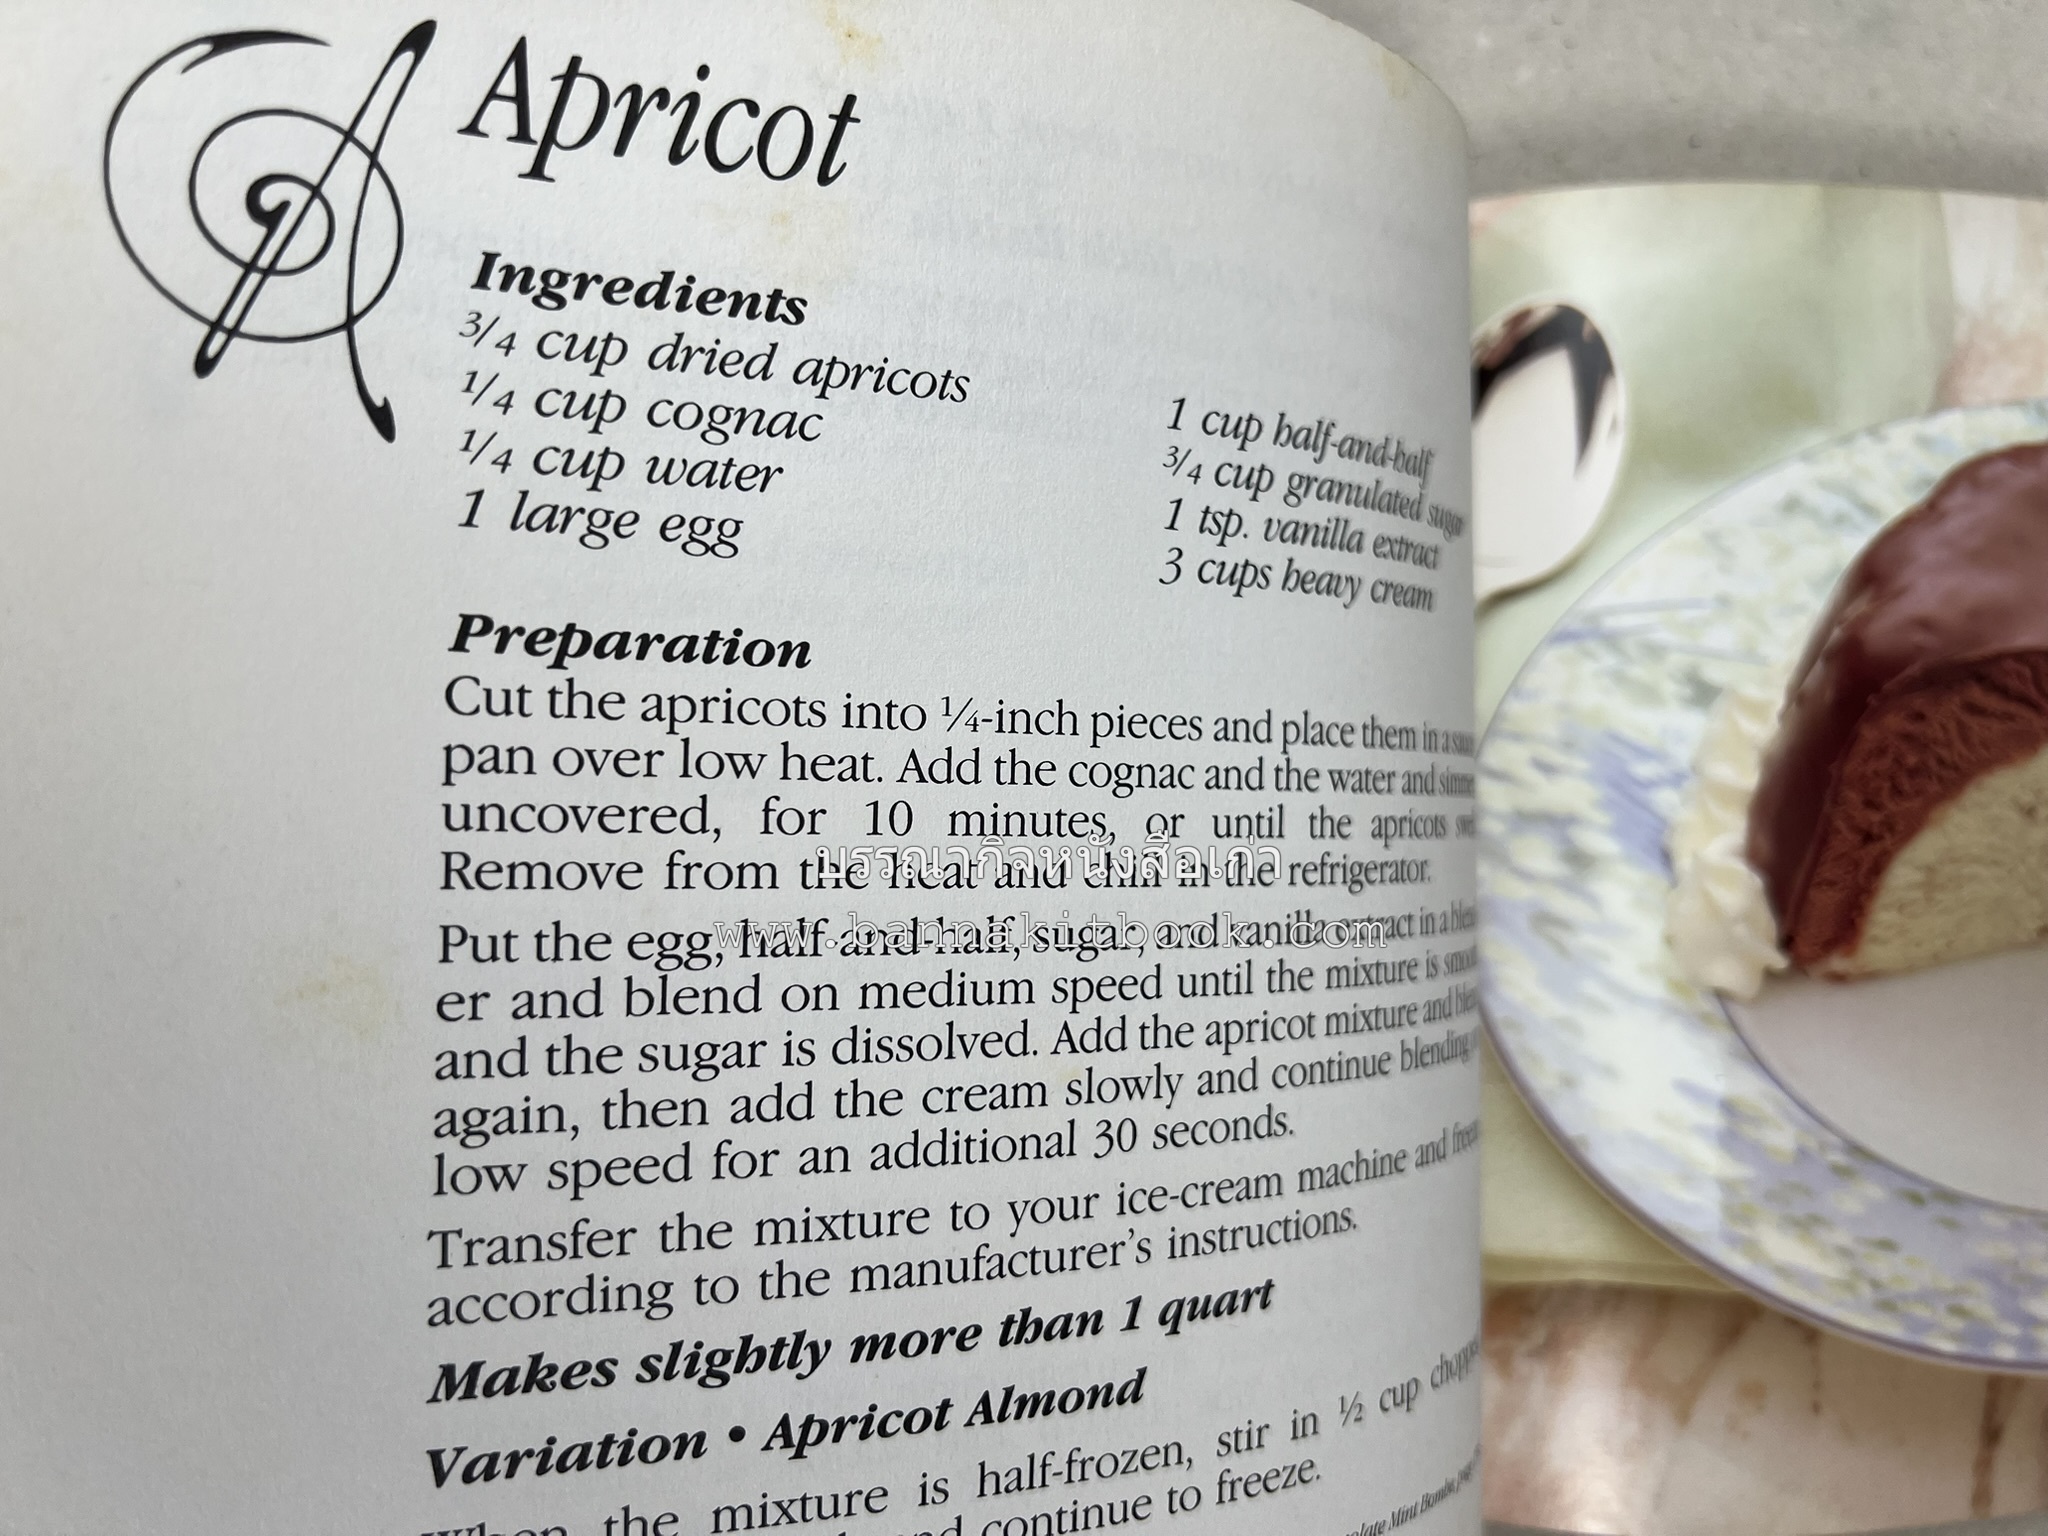 Apricot
Ingredients
3/4 cup dried apricots
1/4 cup cognac
1/4 cup water
1 large egg
1 cup half-and-half
3/4 cup granulated sugar
1 tsp. vanilla extract
3 cups heavy cream
Preparation
Cut the apricots into 1/4-inch pieces and place them in a
pan over low heat. Add the cognac and the water and
uncovered, for 10 minutes, or until the apricots
Remove from the heat and chill in the refrigerator.
บรรณากิจหนังสือเก่า
www.bannakitbook.com
Put the egg, half-and-half, sugar, and vanilla extract in a
er and blend on medium speed until the mixture is
and the sugar is dissolved. Add the apricot mixture and
again, then add the cream slowly and continue blending
low speed for an additional 30 seconds.
Transfer the mixture to your ice-cream machine and
according to the manufacturer's instructions.
Makes slightly more than 1 quart
Variation • Apricot Almond
When the mixture is half-frozen, stir in 1/2 cup
continue to freeze.
Mint Bombe,